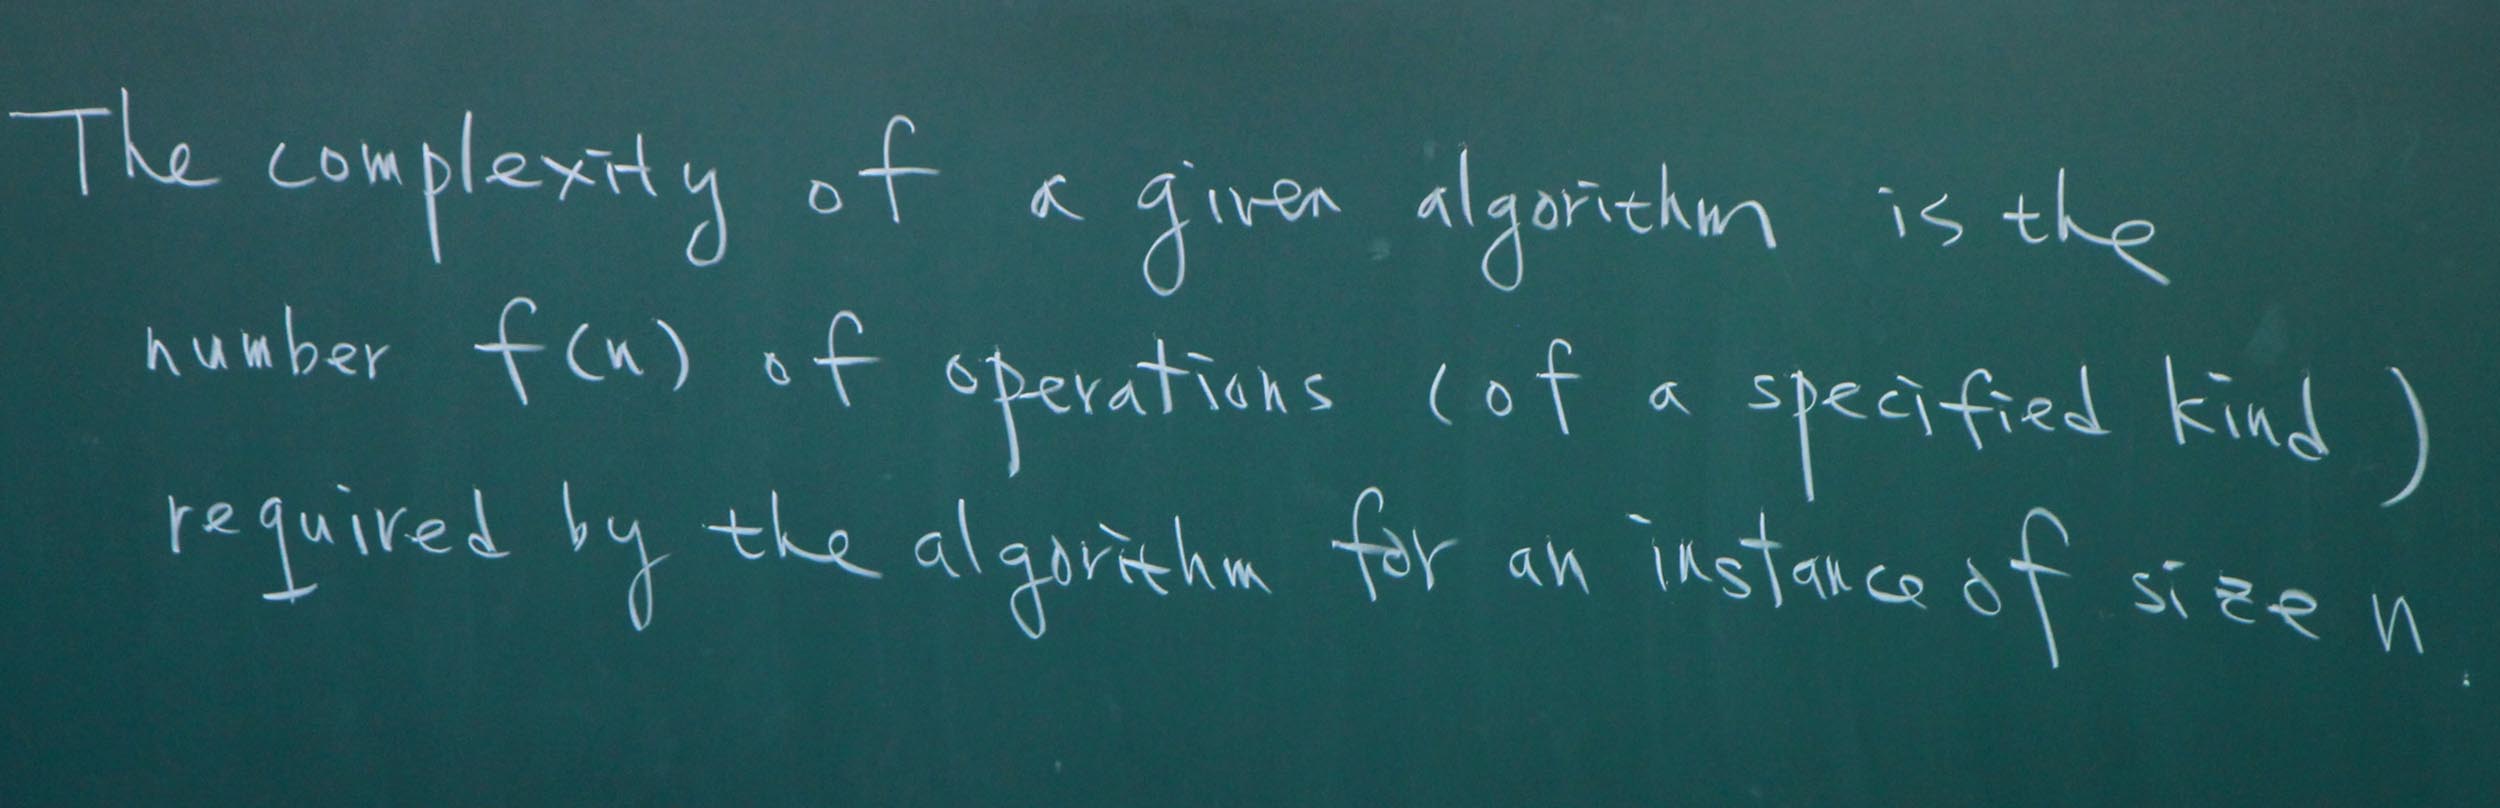 The complexity of a given algorithm is the
number f(n) of operations (of a specified kind)
required by the algorithm for an instance of size n.